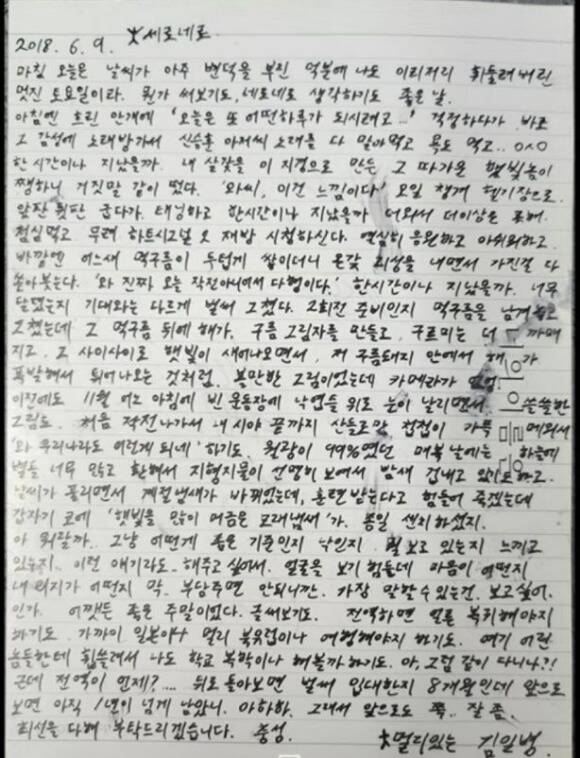 2018. 6. 9. 大세로네로
마침 오늘은 날씨가 아주 변덕을 부린 덕분에 나도 이리저리 휘둘려버린
멋진 토요일이라. 뭔가 써보기도, 네로네로 생각하기도 좋은 날.
아침엔 흐린 안개에 '오늘은 또 어떤하루가 되시려고...' 걱정하다가 바로
그 감성에 노래방가서 신승훈 아저씨 노래를 다 잡아먹고 욕도 먹고.. ^^
한시간이나 지났을까. 내 살갗을 이 지경으로 만든 그 따가운 햇빛놈이
쨍하니 거짓말 같이 떴다. '와씨, 이건 느낌이다' 오일 챙겨 헬기장으로
앞판 뒷판 굽다가. 태닝하고 한시간이나 지났을까 더워서 더이상은 못해.
점심먹고 무려 하트시그널 2 재방 시청하신다. 열심히 응원하고 아쉬워하고
바깥엔 어느새 먹구름이 두텁게 쌓이더니 온갖 괴성을 내면서 가진걸 다
쏟아붓는다. '와 진짜 오늘 작전아니어서 다행이다.' 한시간이나 지났을까. 너무
달렸는지 기대와는 다르게 벌써 그쳤다. 2회전 준비인지 먹구름을 남겨놓고
그쳤는데 그 먹구름 뒤에 해가. 구름 그림자를 만들고, 구르미는 더 까매
지고. 그 사이사이로 햇빛이 새어나오면서, 저 구름돼지 안에서 해가
폭발해서 튀어나오는 것처럼. 볼만한 그림이었는데 카메라가 없었
이전에도 11월 어느 아침에 빈 운동장에 낙엽들 위로 눈이 날리면서 쓸쓸한
그림도. 처음 작전나가서 내 시야 끝까지 산들로만 첩첩이 가득 메워서
'와 우리나라도 이렇게 되네' 하기도. 월광이 99%였던 매복날에는 하늘에
별들 너무 많고 환해서 지형지물이 선명히 보여서 밤새 겁내고 있기도하고.
날씨가 풀리면서 계절냄새가 바뀌었는데, 훈련받는다고 힘들어 죽겠는데
갑자기 코에 '햇빛을 많이 머금은 모래냄새'가. 종일 센치하셨지.
아 뭐랄까. 그냥 어떻게 좁은 기준인지 낙인지 뭘 보고 있는지 느끼고
있는지.. 이런 얘기라도.. 해주고싶어서. 얼굴을 보기 힘들네 마음이 어떤지
내 의지가 어떤지 막.. 부담주면 안되니깐. 가장 말할수 있는건. 보고싶어.
인가. 어쨌든 좋은 주말이었다. 글써보기도. 전역하면 얼른 복귀해야지
하기도. 가까이 일본이나 멀리 북유럽이나 여행해야지 하기도. 여기 어린
놈들한테 휩쓸려서 나도 학교 복학이나 해볼까하기도. 아, 그럼 같이 다니나?!
근데 전역이 언제?.... 뒤로 돌아보면 벌써 입대한지 8개월인데 앞으로
보면 아직 1년이 넘게 남았니. 아하하. 그래서 앞으로도 쭉.. 잘 좀.
최선을 다해 부탁드리겠습니다. 충성.
大멀리있는 김일병.